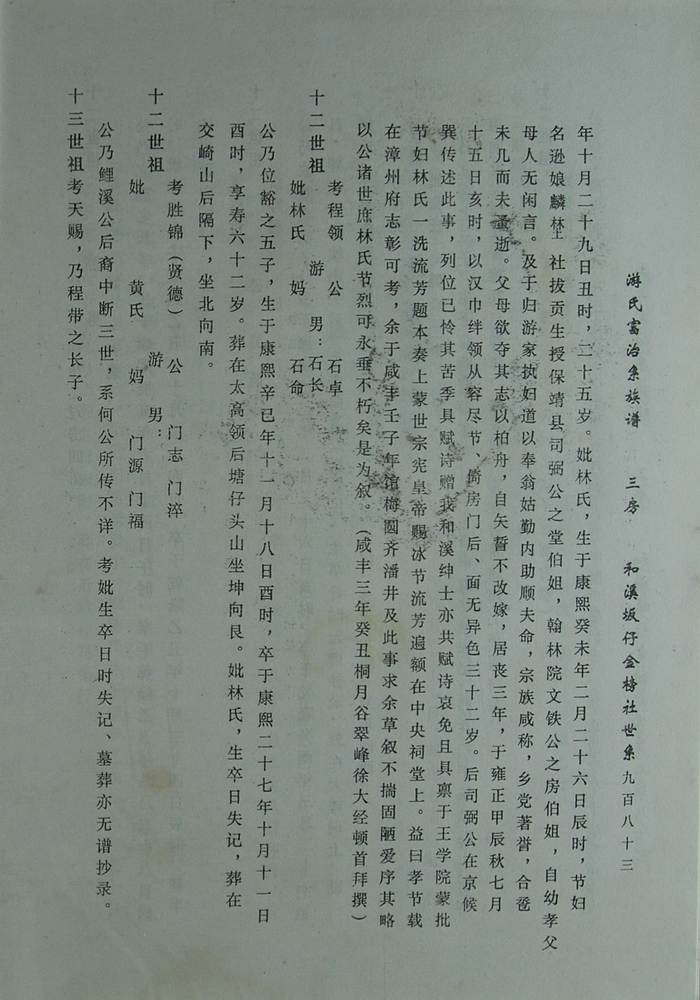 游氏富治系族谱 三房 和溪坂仔金榜社世系九百八十三
年十月二十九日丑时，二十五岁。妣林氏，生于康熙癸未年二月二十六日辰时，节妇
名逊娘麟埜社拔贡生授保靖县司弼公之堂伯姐，翰林院文铁公之房伯姐，自幼孝父
母人无闲言。及于归游家执妇道以奉翁姑勤内助顺夫命，宗族咸称，乡党著誉，合卺
未几而夫蚤逝。父母欲夺其志以柏舟，自矢誓不改嫁，居丧三年，于雍正甲辰秋七月
十五日亥时，以汉巾绊领从容尽节、倚房门后、面无异色三十二岁。后司弼公在京候
巽传述此事，列位已怜其苦季具赋诗赠我和溪绅士亦共赋诗哀免且具禀于王学院蒙批
节妇林氏一洗流芳题本奏上蒙世宗宪皇帝赐冰节流芳遍额在中央祠堂上。益曰孝节载
在漳州府志彰可考，余于咸丰壬子年馆梅圆齐潘井及此事求余草叙不揣固陋爱序其略
以公诸世庶林氏节烈可永垂不朽矣是为叙。（咸丰三年癸丑桐月谷翠峰徐大经顿首拜撰）
十二世祖 考程领 公 石卓
游 男：石长
妣林氏 妈 石命
公乃位豁之五子，生于康熙辛已年十一月十八日酉时，卒于康熙二十七年十月十一日
酉时，享寿六十二岁。葬在太高领后塘仔头山坐坤向艮。妣林氏，生卒日失记，葬在
交崎山后隔下，坐北向南。
十二世祖 考胜锦（贤德） 公 门志 门淬
游 男：
妣 黄氏 妈 门源 门福
公乃鲤溪公后裔中断三世，系何公所传不详。考妣生卒日时失记、墓葬亦无谱抄录。
十三世祖考天赐，乃程带之长子。